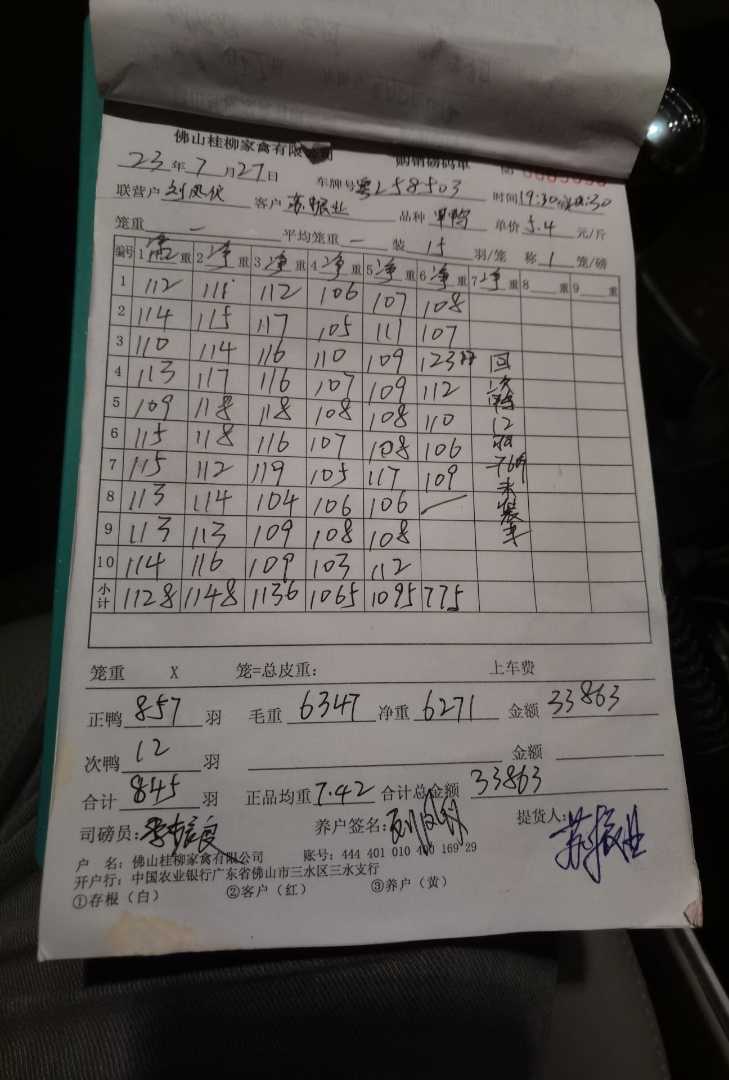 佛山桂柳家禽有限公司 购销磅码单
23年7月27日 车牌号粤Z58503 时间19:30
联营户 客户苏振业 品种 单价5.4元/斤
笼重 — 平均笼重 — 装15羽/笼 称1笼/磅
编号 1 重 2净重 3净重 4净重 5净重 6净重 7净重 8 重 9 重
1 112 115 112 106 107 108
2 114 115 117 105 111 107
3 110 114 116 110 109 123 回
4 113 117 116 107 109 112 次鸭
5 109 118 118 108 108 110 12
6 115 118 116 107 108 106
7 115 112 119 105 117 109 76斤
8 113 114 104 106 106 — 未装
9 113 113 109 108 108 车
10 114 116 109 103 112
小计 1128 1148 1136 1065 1095 775
笼重 X 笼=总皮重: 上车费
正鸭857羽 毛重6347 净重6271 金额33863
次鸭12羽 金额
合计845羽 正品均重7.42 合计总金额33863
司磅员: 养户签名: 提货人:苏振业
户 名:佛山桂柳家禽有限公司 账号:444 401 010 400 169 29
开户行:中国农业银行广东省佛山市三水区三水支行
①存根(白) ②客户(红) ③养户(黄)